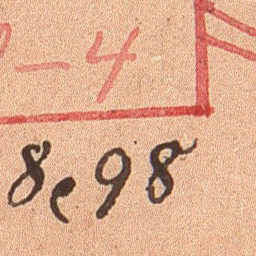 -4
8e98